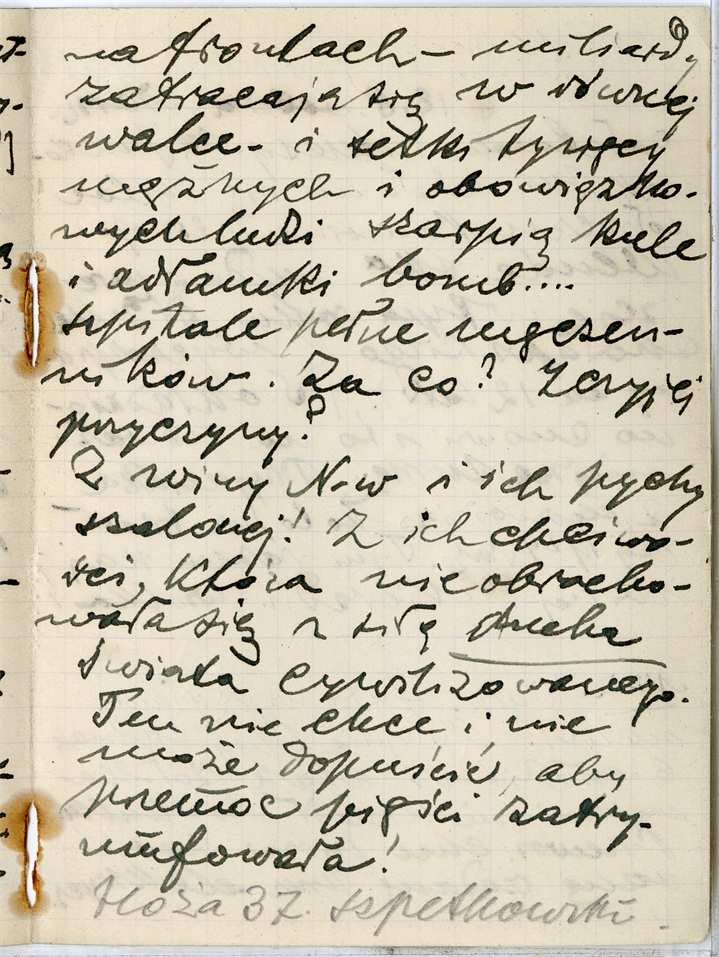 na frontach – miliardy
zatracają się w równej
walce – i setki tysięcy
mężnych i obowiązko-
wych ludzi szarpią kule
i odłamki bomb....
szpitale pełne męczen-
ników. Za co? Z czyjej
przyczyny?
Z winy N-w i ich pychy
szalonej! Z ich chciwo-
ści, która nie obracho-
wała się z siłą ducha
świata cywilizowanego.
Ten nie chce, i nie
może dopuścić, aby
przemoc pięści zatry-
umfowała!
Hoża 37. szpetkowski.